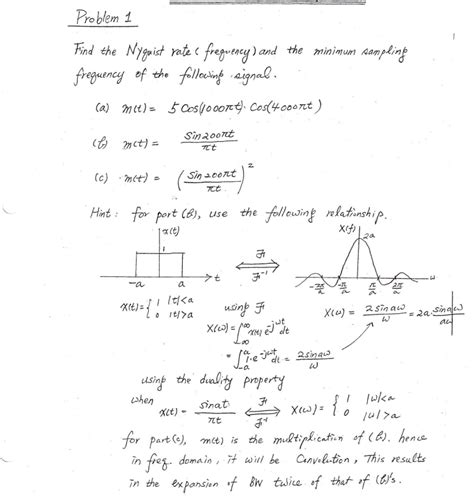 Problem 1
1
Find the Nyquist rate (frequency) and the minimum sampling
frequency of the following signal.
(a) m(t) = 5 Cos(1000πt) · Cos(4000πt)
(b) m(t) = Sin200πt / πt
(c) m(t) = (Sin200πt / πt)²
Hint : for part (b), use the following relationship.
x(t) X(f)
1 2a
F
F⁻¹
-a a t -2π/a -π/a π/a 2π/a w
x(t) = { 1 |t|<a using F X(w) = 2sinaw / w = 2a · sinaw / aw
0 |t|>a
X(w) = ∫_{-∞}^{∞} x(t) e^{-jwt} dt
= ∫_{-a}^{a} 1·e^{-jwt} dt = 2sinaw / w
using the duality property
when
x(t) = sinat / πt F F⁻¹ X(w) = { 1 |w|<a
0 |w|>a
for part(c), m(t) is the multiplication of (b). hence
in freq. domain, it will be Convolution, This results
in the expansion of BW twice of that of (b)'s.